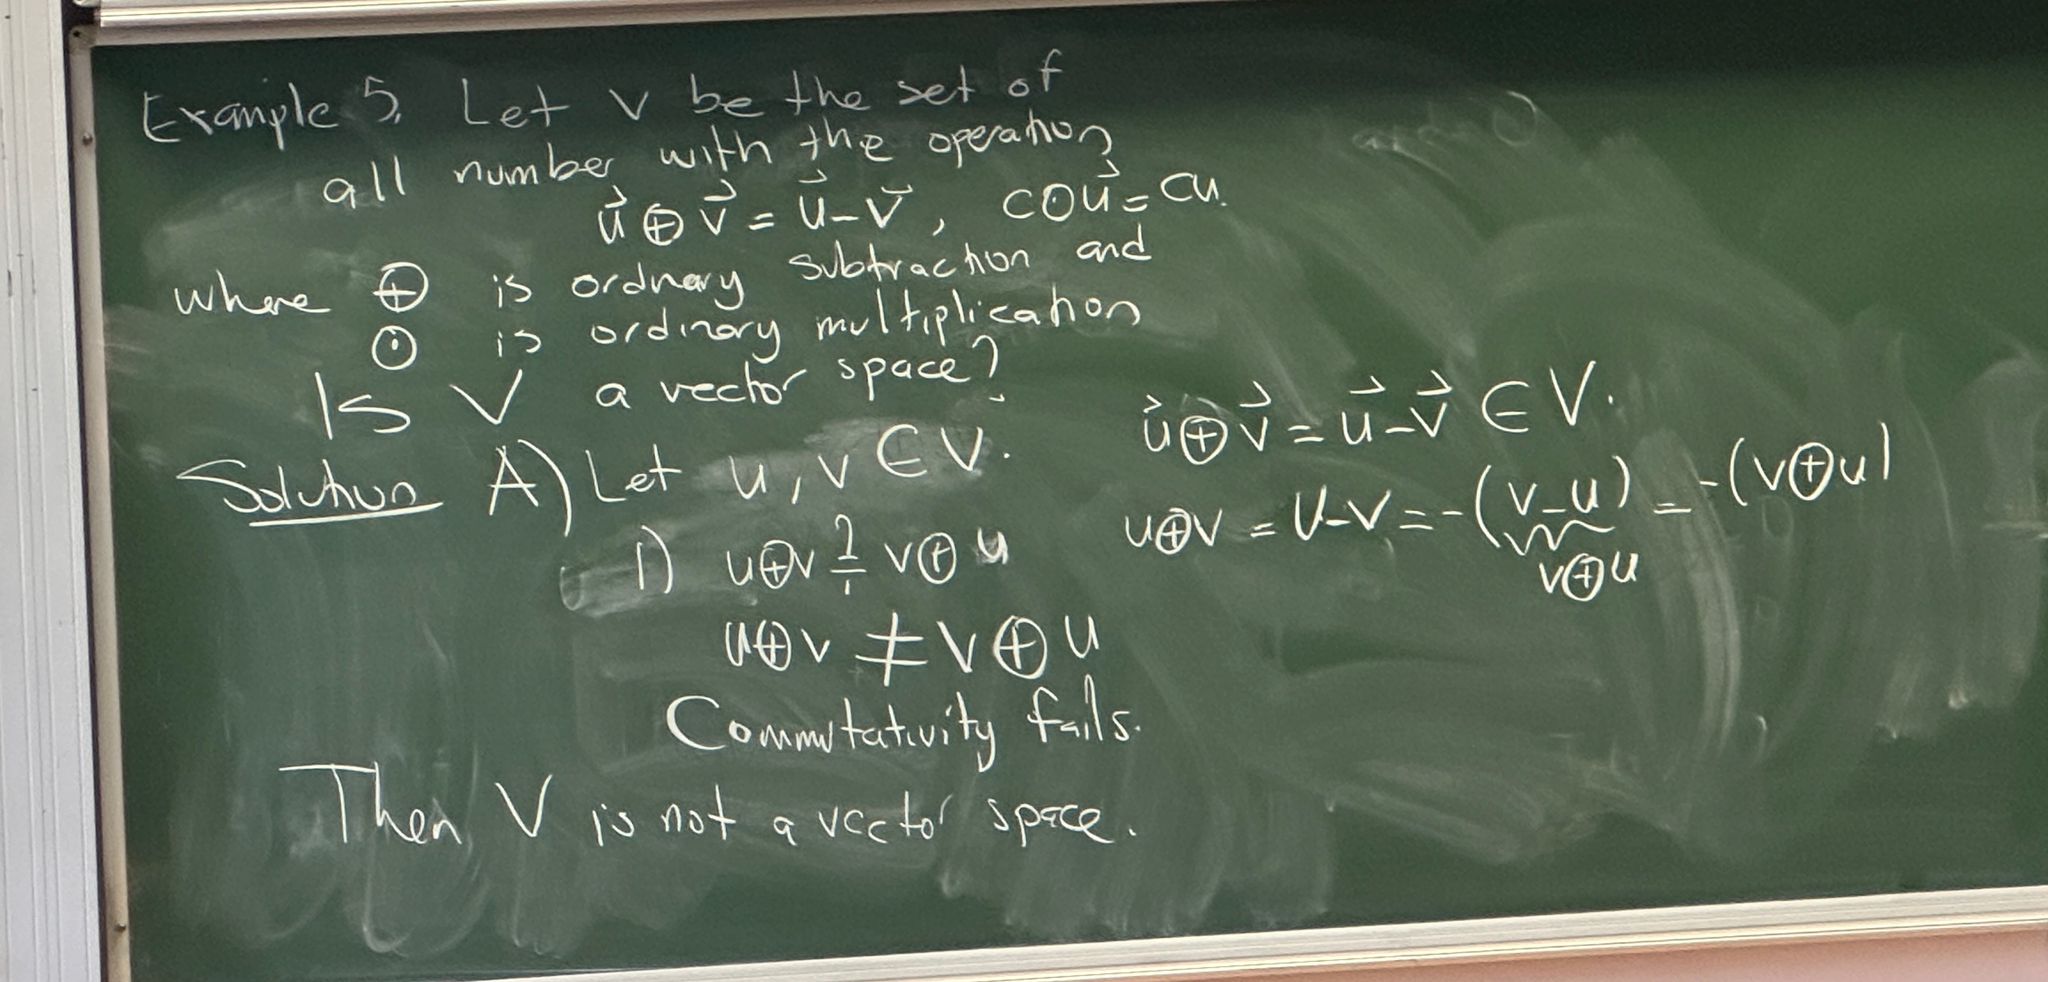 Example 5. Let V be the set of
all number with the operation
u⃗ ⊕ v⃗ = u⃗ - v⃗ , c⊙u⃗ = cu.
where ⊕ is ordnary subtraction and
⊙ is ordinary multiplication
Is V a vector space?
Solution A) Let u, v ∈ V. u⃗ ⊕ v⃗ = u⃗ - v⃗ ∈ V.
1) u⊕v ≟ v⊕u u⊕v = u-v = -(v-u) = -(v⊕u)
v⊕u
u⊕v ≠ v⊕u
Commutativity fails.
Then V is not a vector space.